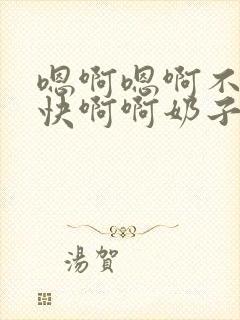 嗯啊嗯啊不
快啊啊奶子
湯賀